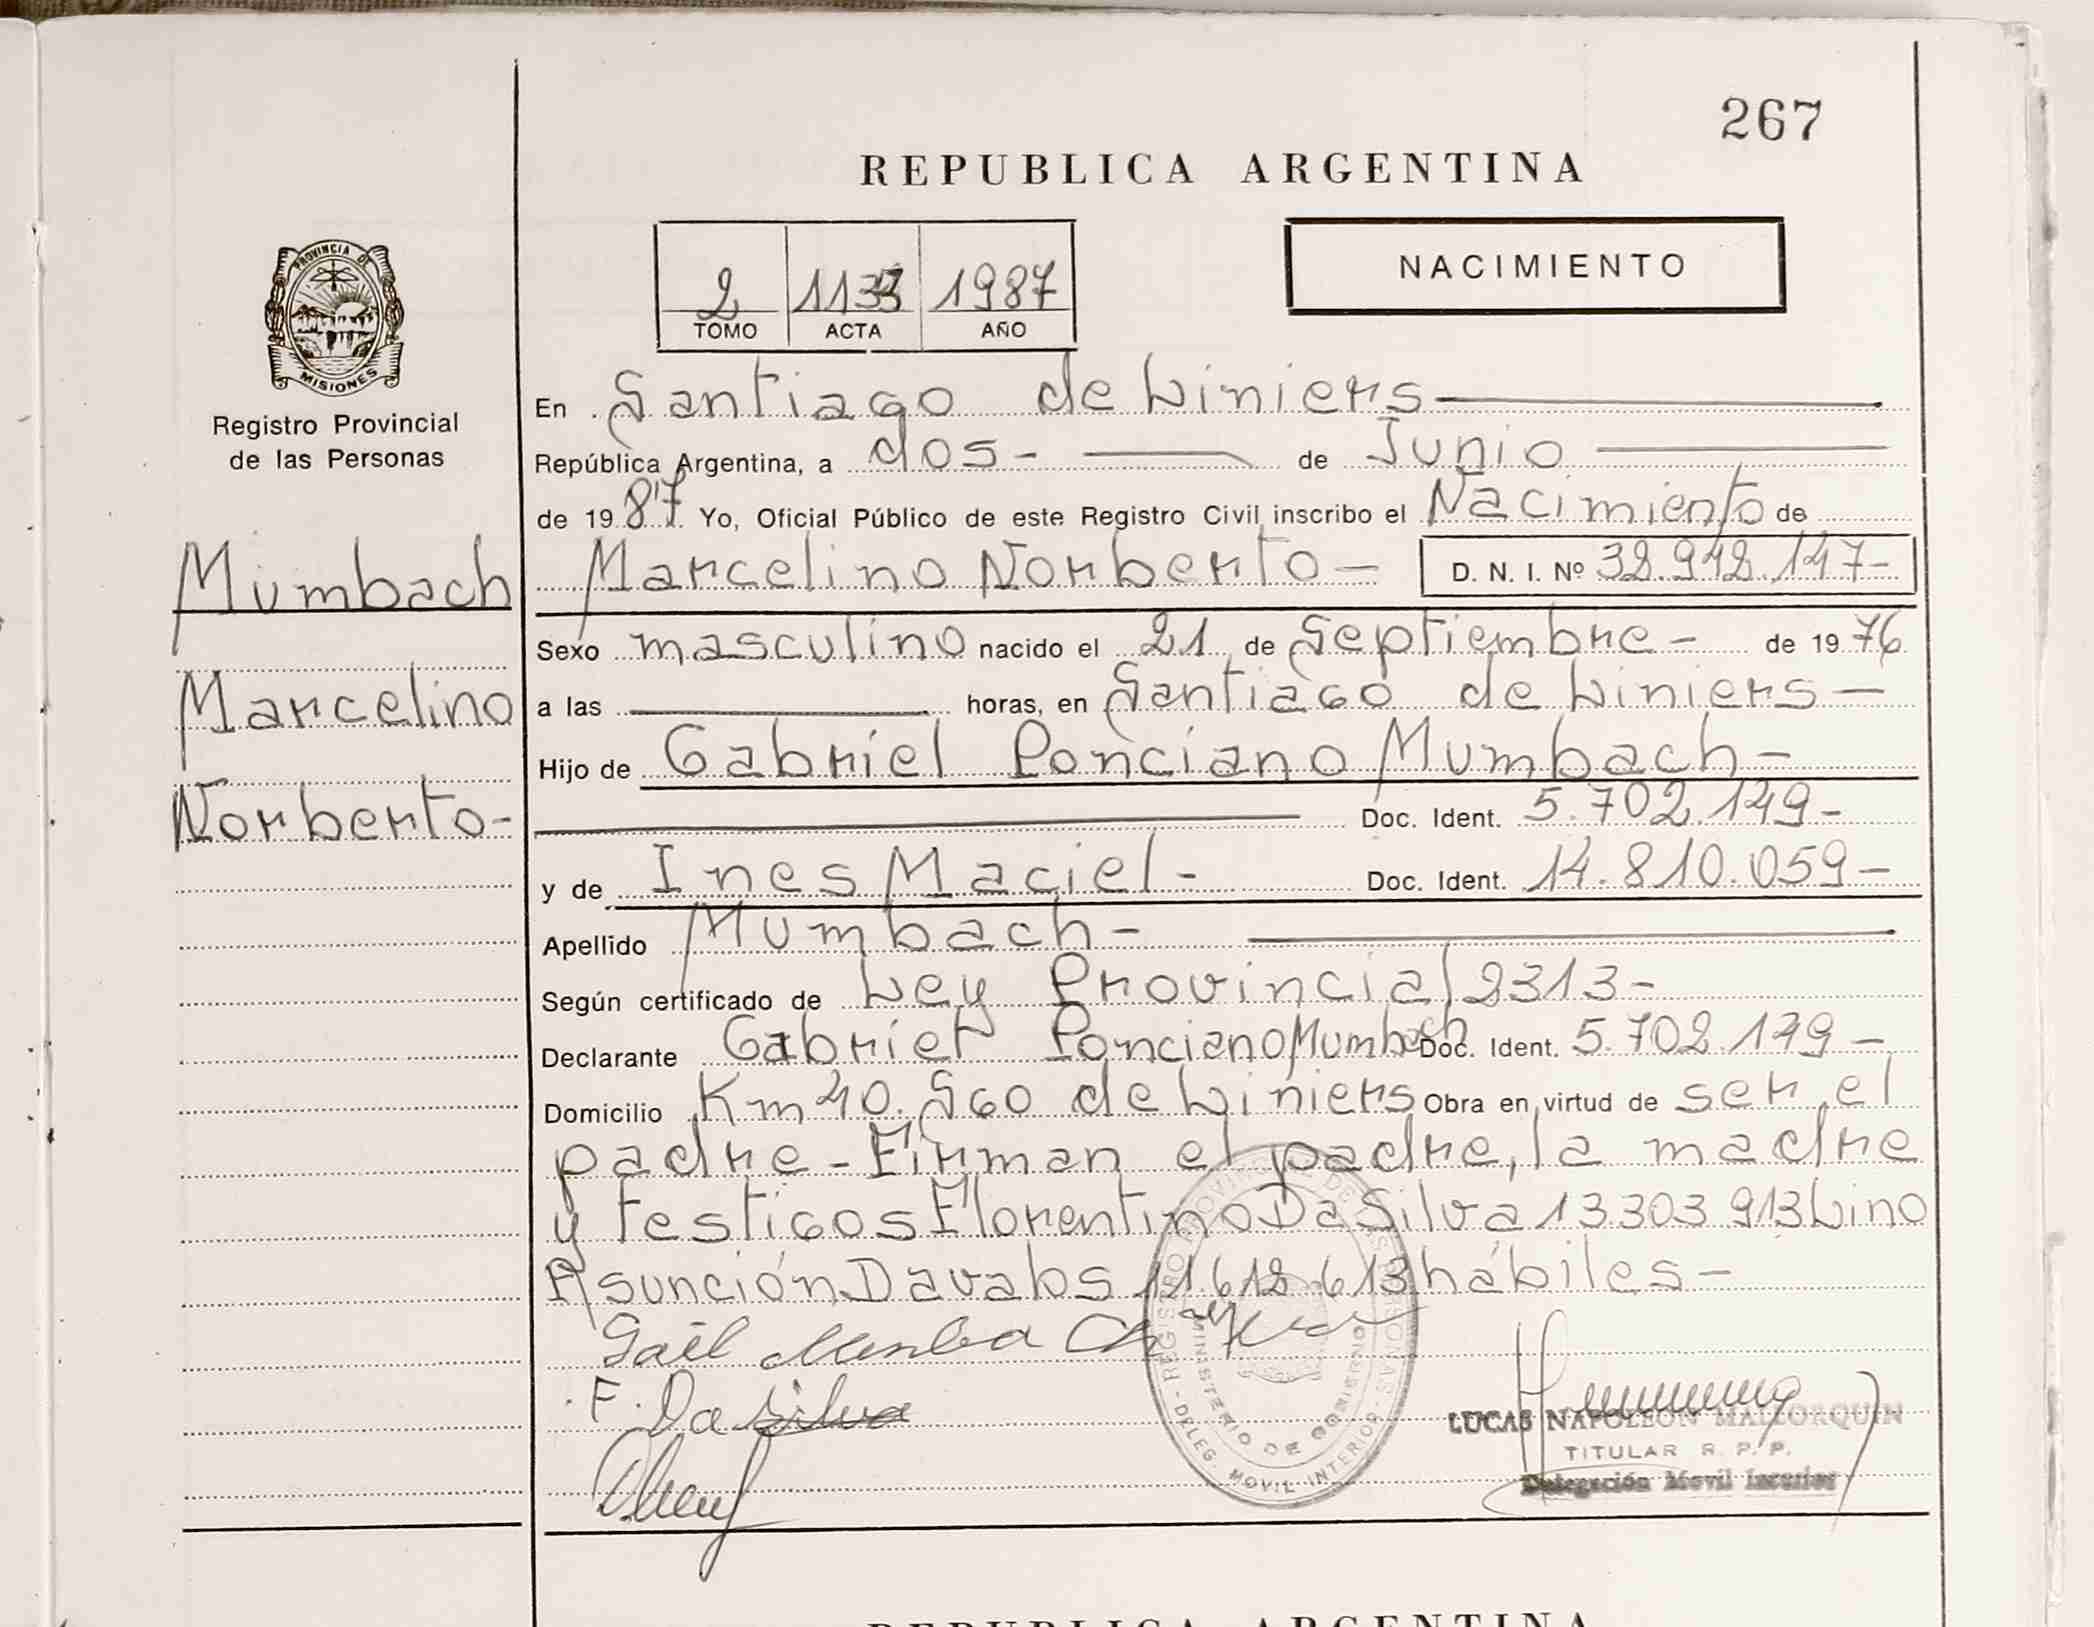 267
REPUBLICA ARGENTINA
2 1133 1987
TOMO ACTA AÑO
NACIMIENTO
PROVINCIA DE
MISIONES
Registro Provincial
de las Personas
Mumbach
Marcelino
Norberto-
En Santiago de Liniers
República Argentina, a dos- de Junio
de 1987 Yo, Oficial Público de este Registro Civil inscribo el Nacimiento de
Marcelino Norberto- D. N. I. Nº 32.942.147-
Sexo masculino nacido el 21 de Septiembre- de 1976
a las horas, en Santiago de Liniers-
Hijo de Gabriel Ponciano Mumbach-
Doc. Ident. 5.702.149-
y de Ines Maciel- Doc. Ident. 14.810.059-
Apellido Mumbach-
Según certificado de Ley Provincial 2313-
Declarante Gabriel Ponciano Mumbach Doc. Ident. 5.702.149-
Domicilio Km 40. Sgo de Liniers Obra en virtud de ser el
padre-Firman el padre, la madre
y testigos Florentino Da Silva 13.303.913 Lino
Asunción Davalos 11.612.613 hábiles-
F. Da Silva
REGISTRO PROVINCIAL DE LAS PERSONAS
MINISTERIO DE GOBIERNO
DELEG. MOVIL INTERIOR
LUCAS NAPOLEON MALLORQUIN
TITULAR R. P. P.
Delegación Movil Interior
REPUBLICA ARGENTINA